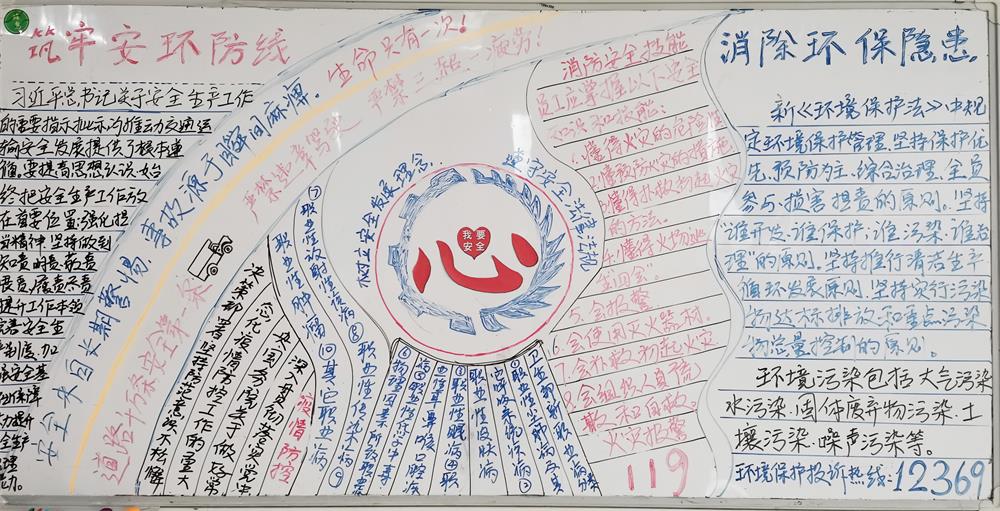 筑牢安环防线
习近平总书记关于安全生产工作
的重要指示批示,为推动交通运
输安全发展提供了根本遵
循,要提高思想认识,始
终把安全生产工作放
在首要位置,强化担
当精神,坚持做到
知责
提升工作本领
安全来自长期警惕,事故源于瞬间麻痹。
生命只有一次!
道路千万条安全第一条
严禁违章驾驶
严禁三超一疲劳!
疫情防控
深入贯彻落实党中
央国务院关于做好常
态化疫情防控工作的重大
决策部署坚持防范意识不松懈
树立安全发展理念..
遵守安全法律法规
我要
安全
心
卫生部新职业病分类
①职业性尘肺病及其
它呼吸系统疾病②
职业性皮肤病
③职业性眼病④职
业性耳鼻喉口腔疾
病
⑥物理因素所致职业病
⑦职业性放射性疾病⑧
职业性传染病⑨
职业性肿瘤⑩其它职业病
消防安全技能
员工应掌握以下安全
知识和技能:
1.懂得火灾的危险性
2.懂救防火灾的措施
3.懂得扑救初起火灾
的方法。
4.懂得火场逃
生回全
5.会报警
6.会使用灭火器材.
7.会扑救初起火灾
8.会组织人员疏
散和自救。
火灾报警
119
消除环保隐患
新《环境保护法》中规
定环境保护管理,坚持保护优
先、预防为主、综合治理、全员
参与、损害担责的原则。坚持
“谁开发,谁保护,谁污染,谁治
理”的原则。坚持推行清洁生产
循环发展原则,坚持实行污染
物达标排放和重点污染
物总量控制的原则。
环境污染包括大气污染
水污染、固体废弃物污染、土
壤污染、噪声污染等。
环境保护投诉热线:12369